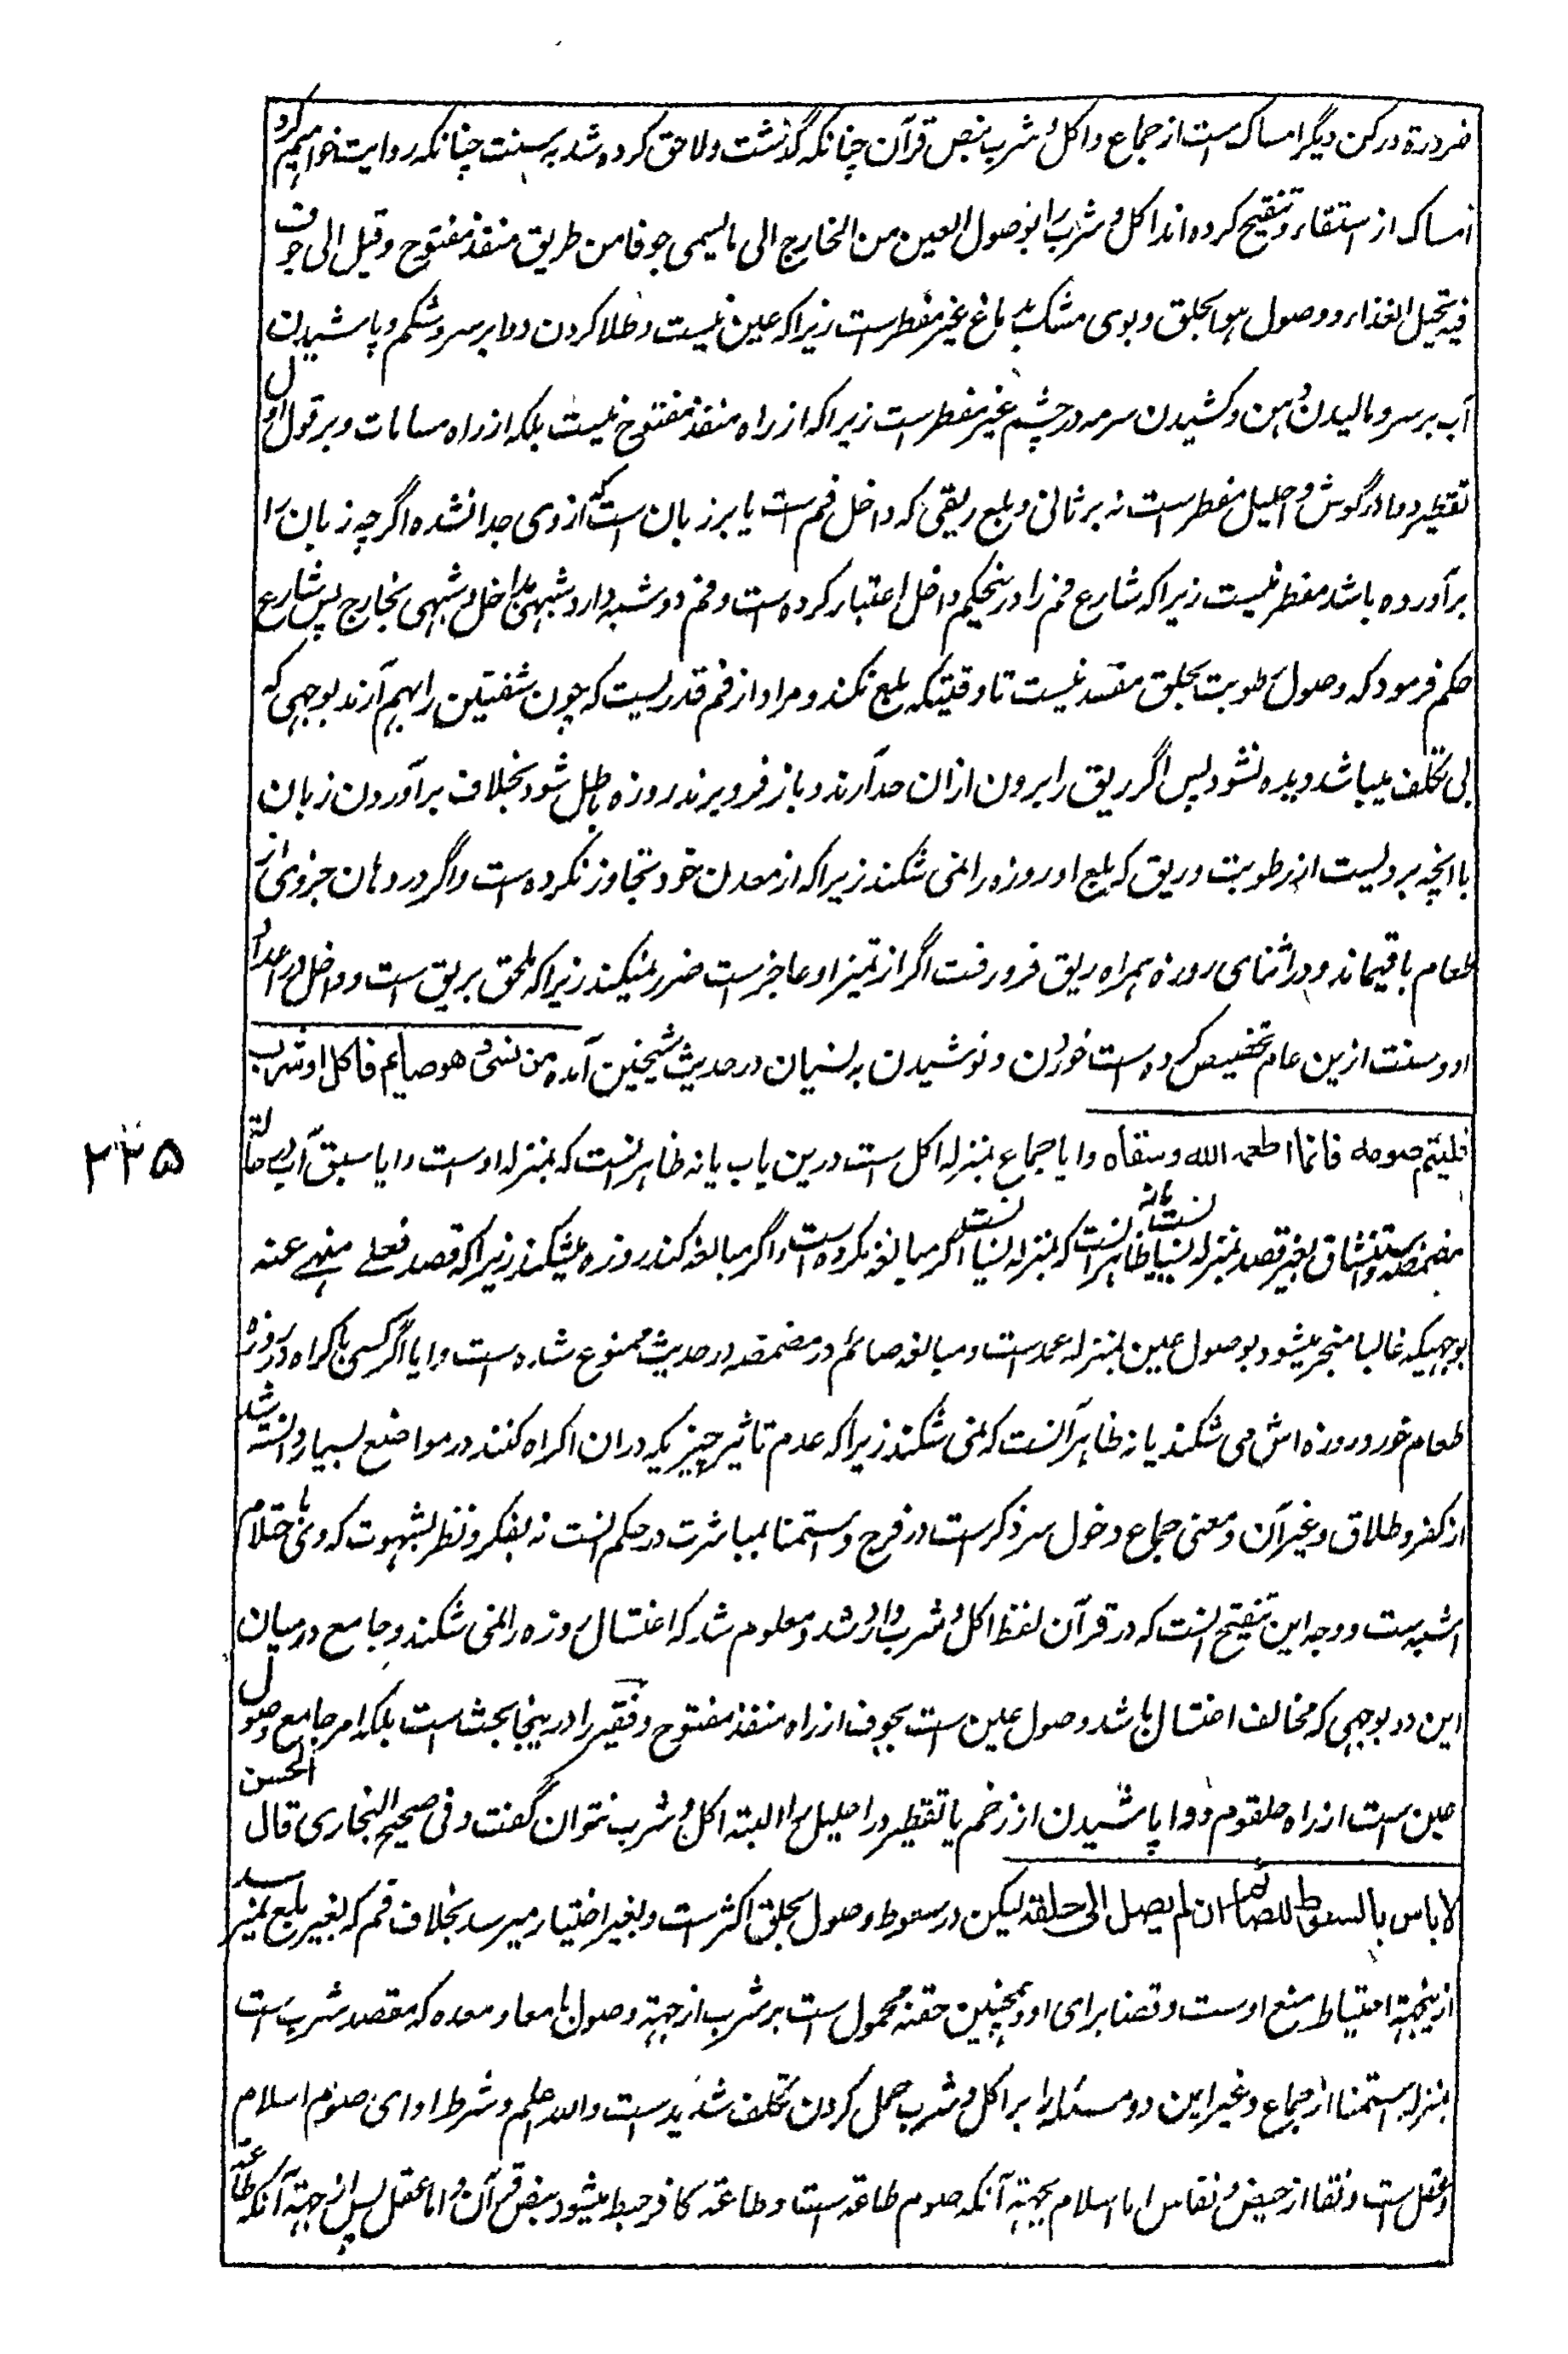 ضرورة در کن دیگر امساک ست از جماع و اکل و شرب بنص قرآن چنانکه گذشت و لاحق کرده شد به سنت چنانکه روایت خواهیم کرد
امساک از استقاء و تنقیح کرده‌اند اکل و شرب را بوصول العین من الخارج الی ما یسمی جوفا من طریق منفذ مفتوح و قیل الی جوف
فیه تحیل الغذاء و وصول هوا بحلق و بوی مشک بدماغ غیر مفطر ست زیرا که عین نیست و طلا کردن دوا بر سر و شکم و پاشیدن
آب بر سر و مالیدن دهن و کشیدن سرمه در چشم غیر مفطر ست زیرا که از راه منفذ مفتوح نیست بلکه از راه مسامات و بر قول اول
تقطیر دوا در گوش و احلیل مفطر ست نه بر ثانی و بلع ریقی که داخل فم ست یا بر زبان ست که از وی جدا نشده اگرچه زبان را
برآورده باشد مفطر نیست زیرا که شارع فم را درینحکم داخل اعتبار کرده ست و فم دو شبه دارد شبهی بداخل و شبهی بخارج پس شارع
حکم فرمود که وصول رطوبت بحلق مفسد نیست تا وقتیکه بلع نکند و مراد از فم قدریست که چون شفتین را بهم آرند بوجهی که
بی تکلف میباشد دیده نشود پس اگر ریق را برون ازان حد آرند و باز فرو برند روزه باطل شود بخلاف برآوردن زبان
با انچه بر ویست از رطوبت و ریق که بلع او روزه را نمی شکند زیرا که از معدن خود تجاوز نکرده ست و اگر در دهان جزوی از
طعام باقیماند و در اثنای روزه همراه ریق فرو رفت اگر از تمیز او عاجز ست ضرر نمیکند زیرا که ملحق بریق ست و داخل در اعداد
او و سنت ازین عام تخصیص کرده ست خوردن و نوشیدن به نسیان در حدیث شیخین آمده من نسی و هو صایم فاکل او شرب
فلیتم صومه فانما اطعمه الله و سقاه و ایا جماع بمنزله اکل ست درین باب یا نه ظاهر آنست که بمنزله اوست و ایا سبق آب در حالت
مضمضه و استنشاق بغیر قصد بمنزله نسیانست یا نه ظاهر آنست که بمنزله نسیانست اگر مبالغه نکرده است و اگر مبالغه کند روزه میشکند زیرا که قصد فعلے منهے عنه
بوجهیکه غالبا منجر میشود بوصول عین بمنزله عمد ست و مبالغه صائم در مضمضه در حدیث ممنوع شده ست و ایا اگر کسی باکراه در روزه
طعام خورد روزه اش می شکند یا نه ظاهر آنست که نمی شکند زیرا که عدم تاثیر چیزیکه دران اکراه کنند در مواضع بسیار دانسته شد
از کفر و طلاق و غیر آن و معنی جماع دخول سر ذکر ست در فرج و استمنا بمباشرت در حکم آنست نه بفکر و نظر بشهوت که وی باحتلام
اشبه ست و وجه این تنقیح آنست که در قرآن لفظ اکل و شرب وارد شد و معلوم شد که اغتسال روزه را نمی شکند و جامع درمیان
این دو بوجهی که مخالف اغتسال باشد وصول عین ست بجوف از راه منفذ مفتوح و فقیر را درینجا بحث است بلکه امر جامع وصول
عین ست از راه حلقوم و دوا پاشیدن از زخم یا تقطیر در احلیل را البته اکل و شرب نتوان گفت و فی صحیح البخاری قال الحسن
لا باس بالسعوط للصائم ان لم یصل الی حلقه لیکن در سعوط وصول بحلق اکثر ست و بغیر اختیار میرسد بخلاف فم که بغیر بلع نمیرسد
ازینجهة احتیاط منع اوست و قضا برای او و همچنین حقنه محمول است بر شرب از جهة وصول بامعا و معده که مقصد شرب است
بمنزله استمنا از جماع و غیر این دو مسئله را بر اکل و شرب حمل کردن تکلف شدید ست والله اعلم و شرط ادای صوم اسلام
و عقل ست و نقا از حیض و نفاس اما اسلام بجهة آنکه صوم طاعة ست و طاعة کافر حبط میشود بنص قرآن و اما عقل پس از جهة آنکه طاعة
۲۲۵